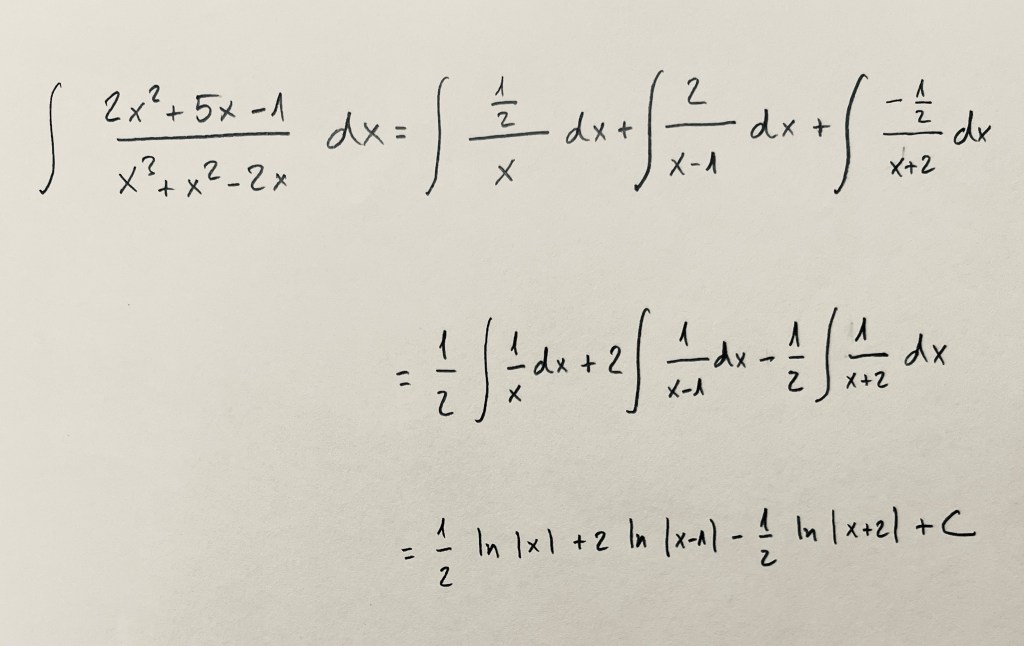 ∫ (2x² + 5x - 1)/(x³ + x² - 2x) dx = ∫ (1/2)/x dx + ∫ 2/(x-1) dx + ∫ (-1/2)/(x+2) dx
= 1/2 ∫ 1/x dx + 2 ∫ 1/(x-1) dx - 1/2 ∫ 1/(x+2) dx
= 1/2 ln |x| + 2 ln |x-1| - 1/2 ln |x+2| + C